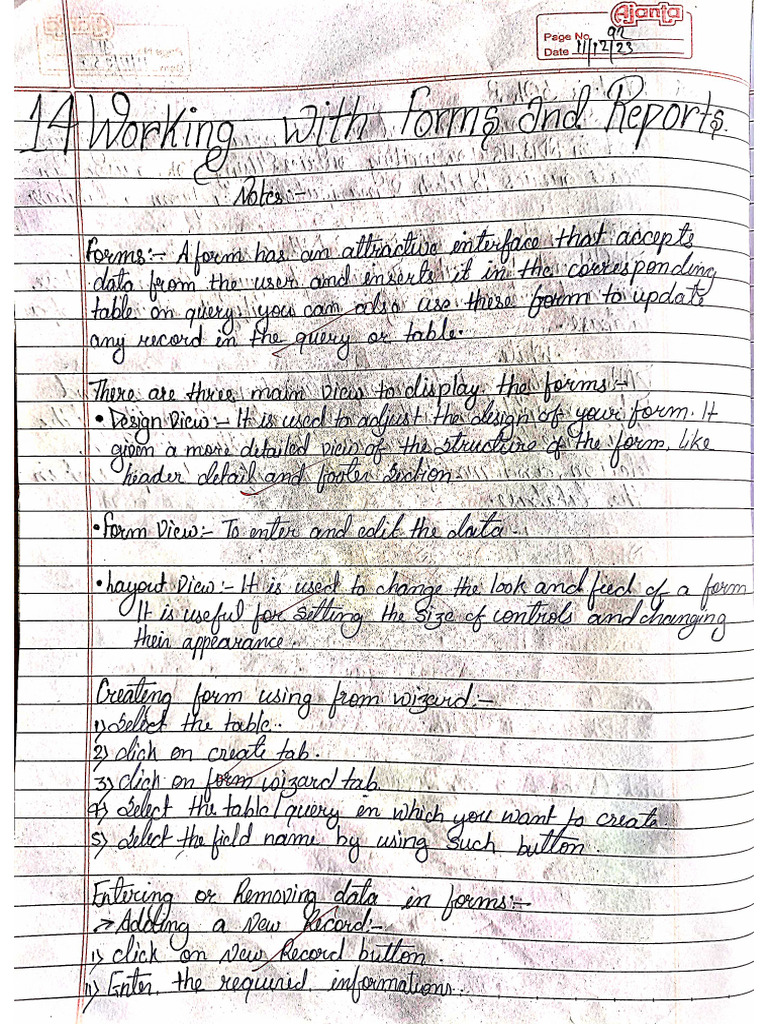 Ajanta
Page No. 92
Date 11/12/23
14 Working with Forms and Reports.
Notes:-
Forms:- A form has an attractive interface that accepts
data from the user and inserts it in the corresponding
table on query. you can also use these form to update
any record in the query or table.
There are three main view to display the forms:-
• Design View:- It is used to adjust the design of your form. It
given a more detailed view of the structure of the form, like
header detail and footer section.
• Form View:- To enter and edit the data.
• Layout View:- It is used to change the look and feed of a form
It is useful for setting the size of controls and changing
their appearance.
Creating form using from wizard:-
1) Select the table.
2) click on create tab.
3) click on form wizard tab.
4) Select the table/query in which you want to create.
5) Select the field name by using such button.
Entering or Removing data in forms:-
→ Adding a New Record:-
i) click on New Record button.
ii) Enter the required informations.